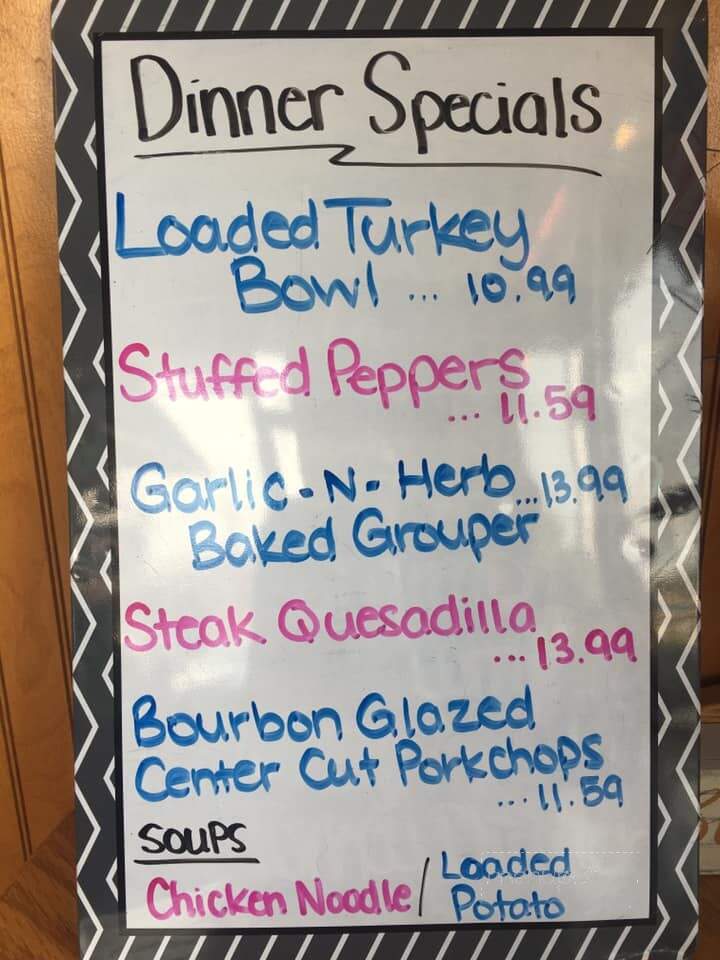 Dinner Specials
Loaded Turkey
Bowl ... 10.99
Stuffed Peppers
... 11.59
Garlic-N-Herb ...13.99
Baked Grouper
Steak Quesadilla
... 13.99
Bourbon Glazed
Center Cut Porkchops
... 11.59
SOUPS
Chicken Noodle / Loaded
Potato